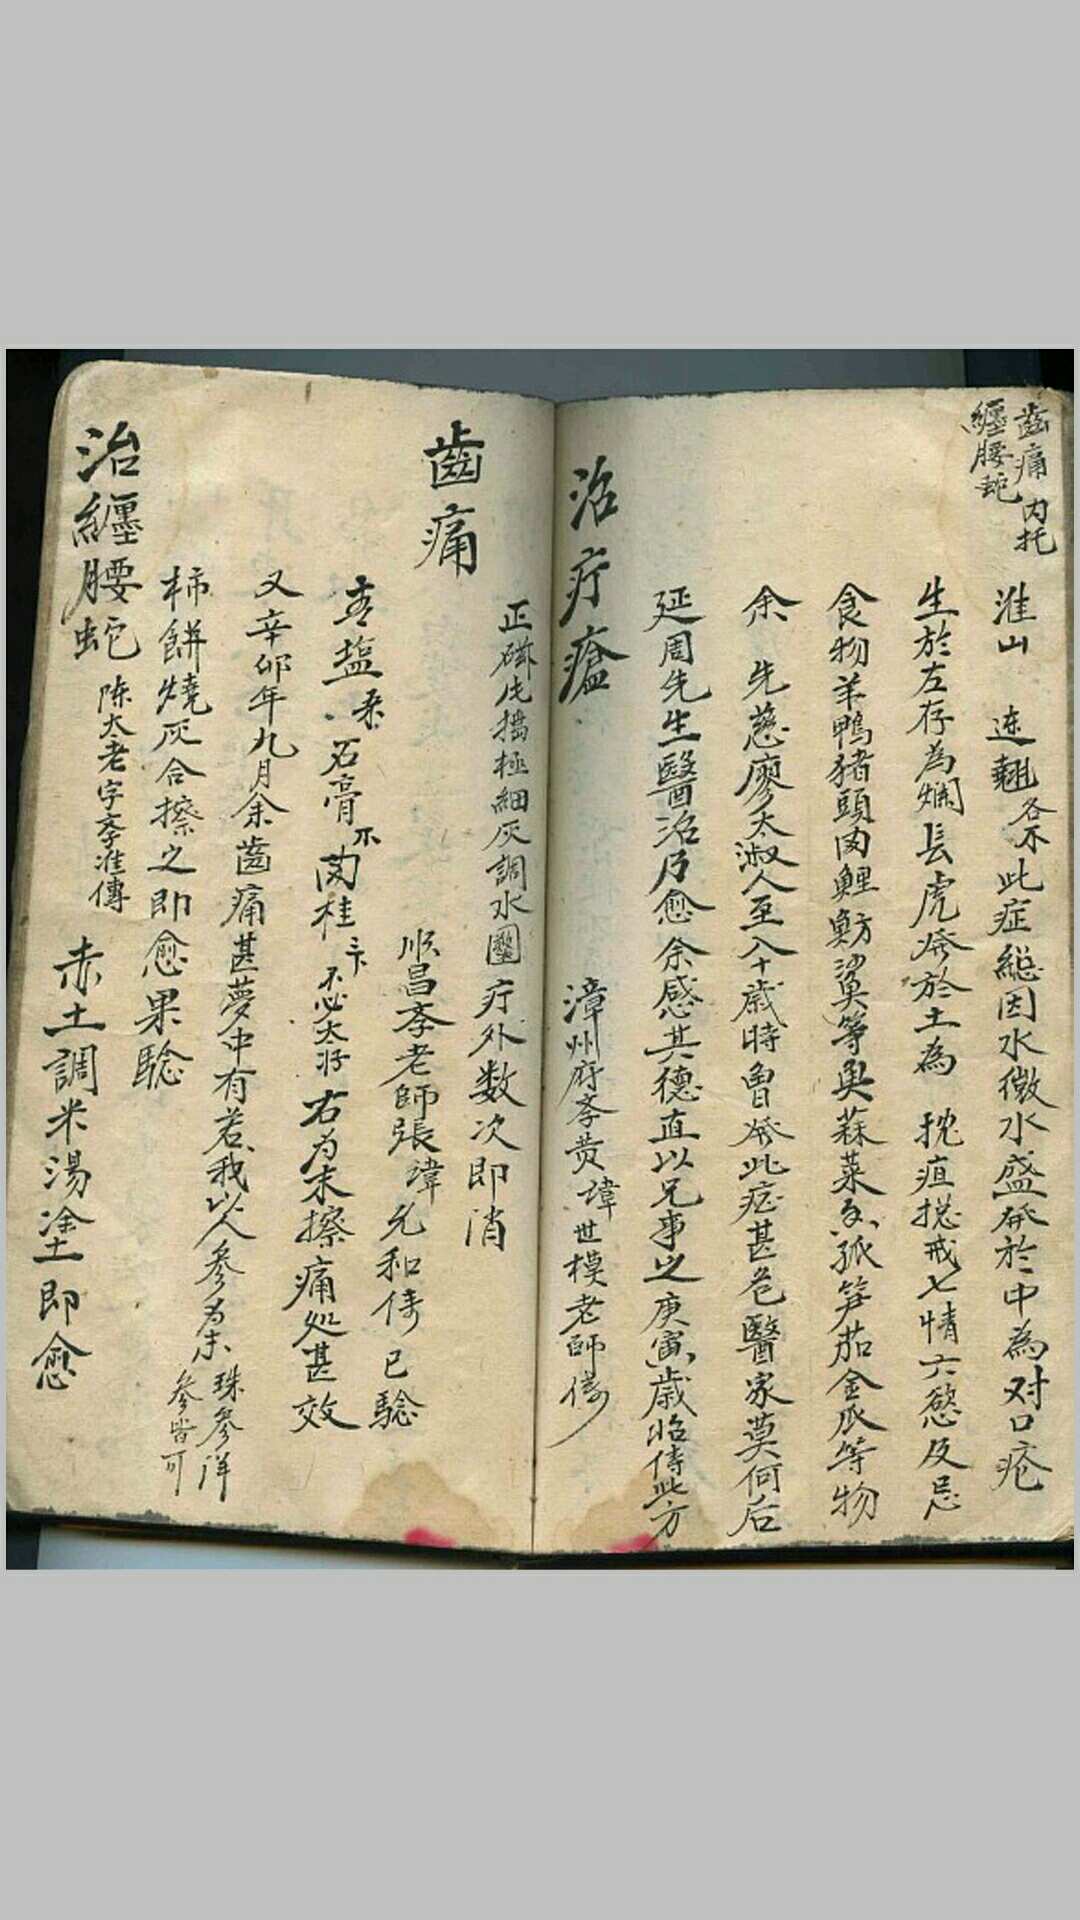 齒痛 内托
纏腰蛇
淮山 连翹各 此症總因水微水盛發於中為对口疮
生於左存為爛長虎發於土為 疽 戒七情六慾及忌
食物羊鴨猪頭肉鯉 等臭蔴菜 笋茄金瓜等物
余 先慈廖太淑人至八十歲時曾發此症甚危醫家莫何后
延周先生醫治乃愈余感其德直以兄事之庚寅歲 傳此方
治疔瘟
漳州府李黄諱世模老師傳
正磁 搗極細灰調水圈疔外数次即消
齒痛
順昌李老師張諱允和傳已騐
青塩 石膏 肉桂 不必太好 右为末擦痛处甚效
又辛卯年九月余齒痛甚夢中有若我以人參为末 珠參洋
參皆可
柿餅燒灰合擦之即愈果騐
治纏腰蛇
陈太老字李淮傳
赤土調米湯塗即愈